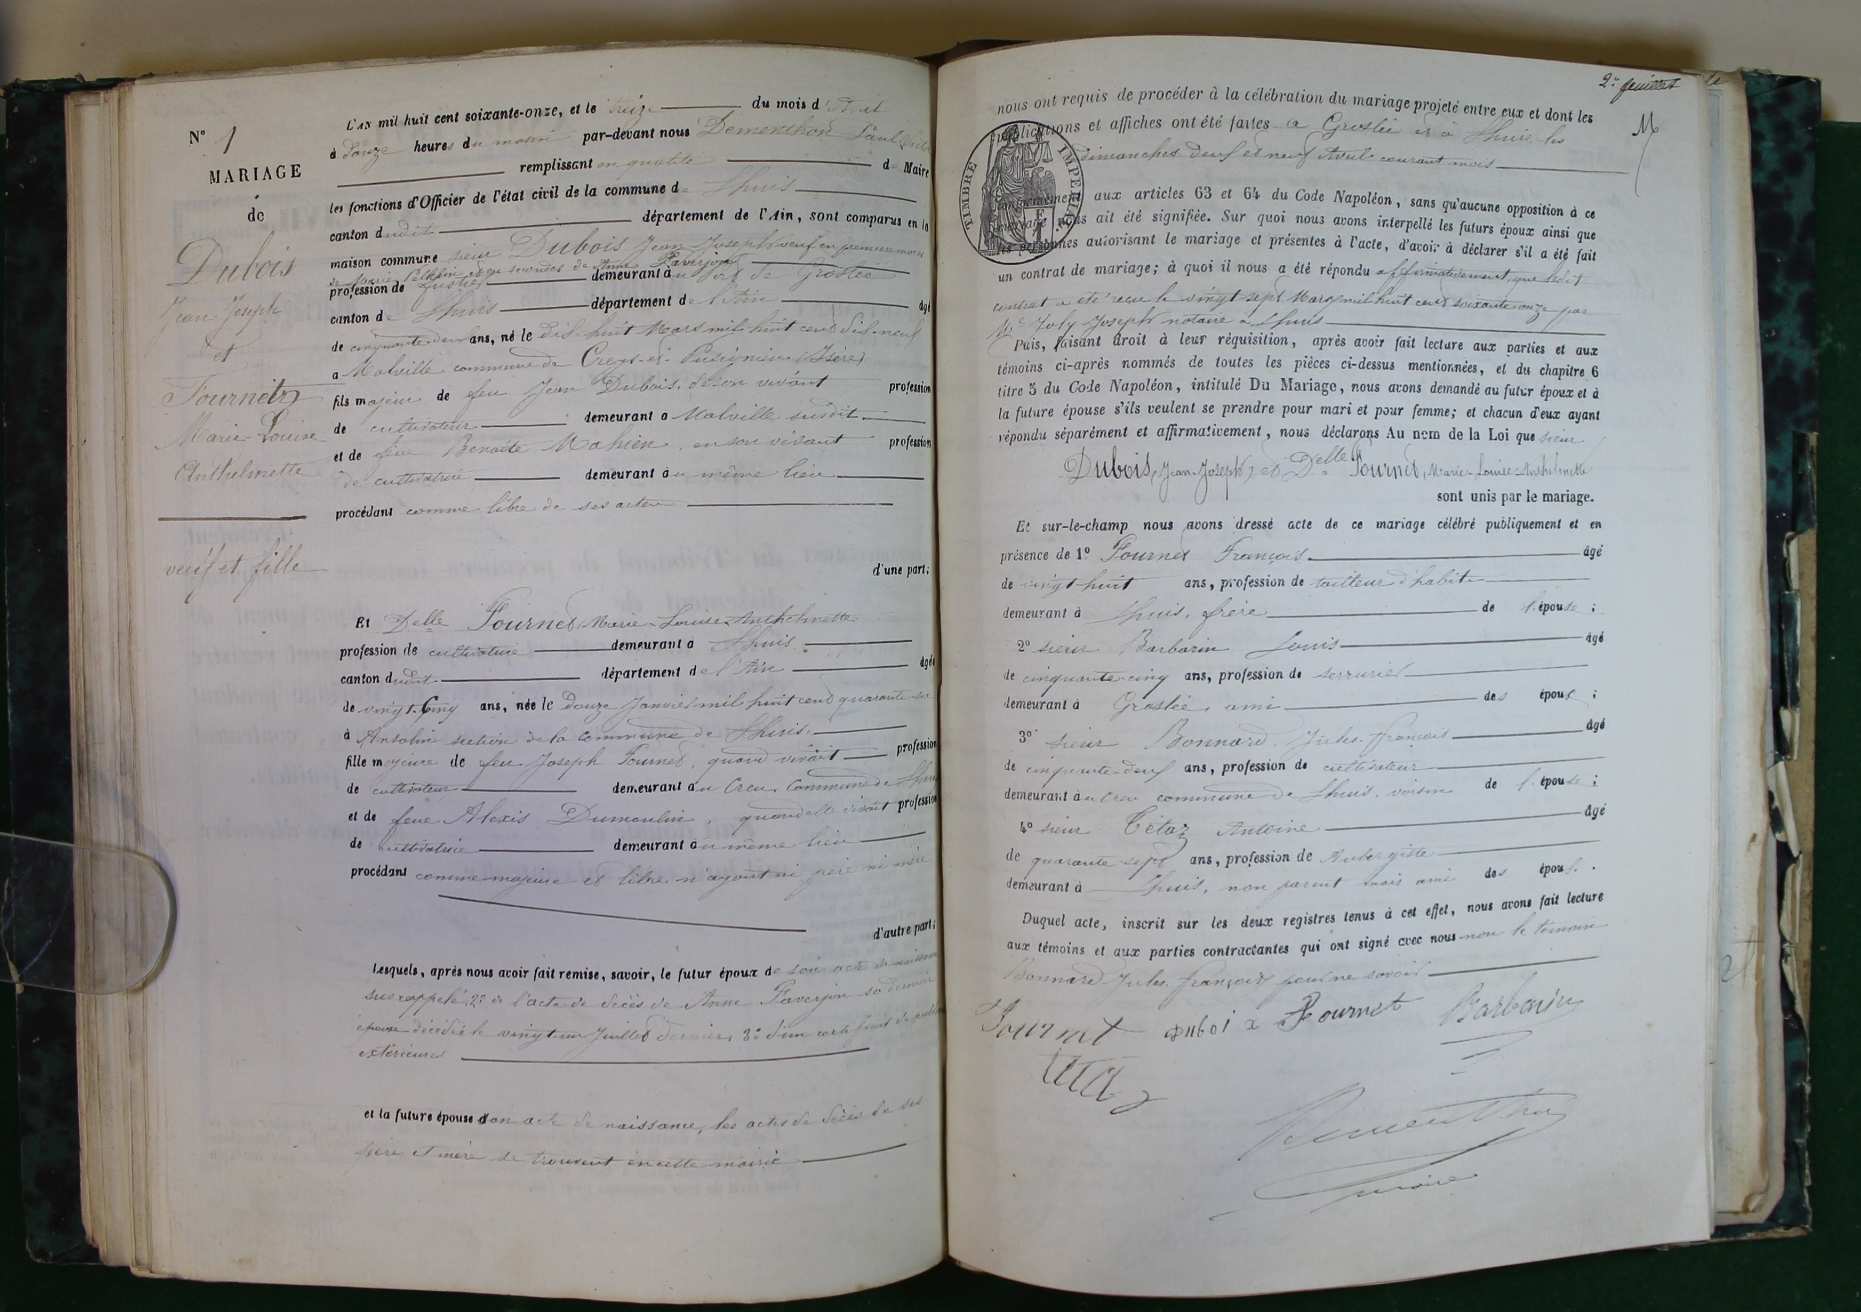 N° 1
MARIAGE
de
Dubois
Jean Joseph
et
Fournet
Marie Louise
Anthelmette
veuf et fille
L'AN mil huit cent soixante-onze, et le treize du mois d'Avril
à douze heures du matin par-devant nous Dementhon Paul
remplissant en qualité de Maire
les fonctions d'Officier de l'état civil de la commune de Lhuis
canton dudit département de l'Ain, sont comparus en la
maison commune sieur Dubois Jean Joseph veuf en premières noces
de Marie et en secondes de Anne Faverjon
profession de demeurant au port de Groslée
canton de Lhuis département de l'Ain âgé
de cinquante-deux ans, né le dix-huit Mars mil huit cent dix-neuf
a Malville commune de Creys-et-Pusignieu (Isère)
fils majeur de feu Jean Dubois, de son vivant profession
de cultivateur demeurant a Malville susdit
et de feue Benoite Mahieu, en son vivant profession
de cultivatrice demeurant au même lieu
procédant comme libre de ses actes
d'une part;
Et Delle Fournet Marie-Louise-Anthelmette
profession de cultivatrice demeurant à Lhuis
canton dudit département de l'Ain âgée
de vingt-cinq ans, née le douze Janvier mil huit cent quarante-six
à Ansolin section de la commune de Lhuis
fille majeure de feu Joseph Fournet, quand vivait profession
de cultivateur demeurant au Creu, Commune de Lhuis
et de feue Alexis Dumoulin, quand elle vivait profession
de cultivatrice demeurant au même lieu
procédant comme majeure et libre n'ayant ni père ni mère
d'autre part;
Lesquels, après nous avoir fait remise, savoir, le futur époux de son acte de naissance
sus rappelé, 2° de l'acte de décès de Anne Faverjon sa dernière
épouse décédée le vingt un Juillet dernier, 3° d'un certificat de publication
extérieures
et la future épouse son acte de naissance, les actes de décès de ses
père et mère se trouvent en cette mairie
2e feuillet
nous ont requis de procéder à la célébration du mariage projeté entre eux et dont les
publications et affiches ont été faites a Groslée et à Lhuis les
dimanches deux et neuf Avril courant mois
TIMBRE IMPERIAL
Conformément aux articles 63 et 64 du Code Napoléon, sans qu'aucune opposition à ce
mariage nous ait été signifiée. Sur quoi nous avons interpellé les futurs époux ainsi que
les personnes autorisant le mariage et présentes à l'acte, d'avoir à déclarer s'il a été fait
un contrat de mariage; à quoi il nous a été répondu affirmativement, que ledit
contrat a été reçu le vingt sept Mars mil huit cent soixante onze par
Me Joly Joseph notaire à Lhuis
Puis, faisant droit à leur réquisition, après avoir fait lecture aux parties et aux
témoins ci-après nommés de toutes les pièces ci-dessus mentionnées, et du chapitre 6
titre 5 du Code Napoléon, intitulé Du Mariage, nous avons demandé au futur époux et à
la future épouse s'ils veulent se prendre pour mari et pour femme; et chacun d'eux ayant
répondu séparément et affirmativement, nous déclarons Au nom de la Loi que sieur
Dubois, (Jean-Joseph) et Delle Fournet, Marie-Louise-Anthelmette
sont unis par le mariage.
Et sur-le-champ nous avons dressé acte de ce mariage célébré publiquement et en
présence de 1° Fournet François âgé
de vingt-huit ans, profession de tailleur d'habits
demeurant à Lhuis, frère de l'épouse;
2° sieur Barbarin Louis âgé
de cinquante-cinq ans, profession de serrurier
demeurant à Groslée, ami des époux;
3° sieur Bonnard Jules François âgé
de cinquante-deux ans, profession de cultivateur
demeurant au Creu commune de Lhuis, voisin de l'épouse;
4° sieur Tétaz Antoine âgé
de quarante sept ans, profession de Aubergiste
demeurant à Lhuis, non parent mais ami des époux.
Duquel acte, inscrit sur les deux registres tenus à cet effet, nous avons fait lecture
aux témoins et aux parties contractantes qui ont signé avec nous non le témoin
Bonnard Jules François pour ne savoir
Fournet Duboi x Fournet Barbarin
Tétaz
Dementhon
maire